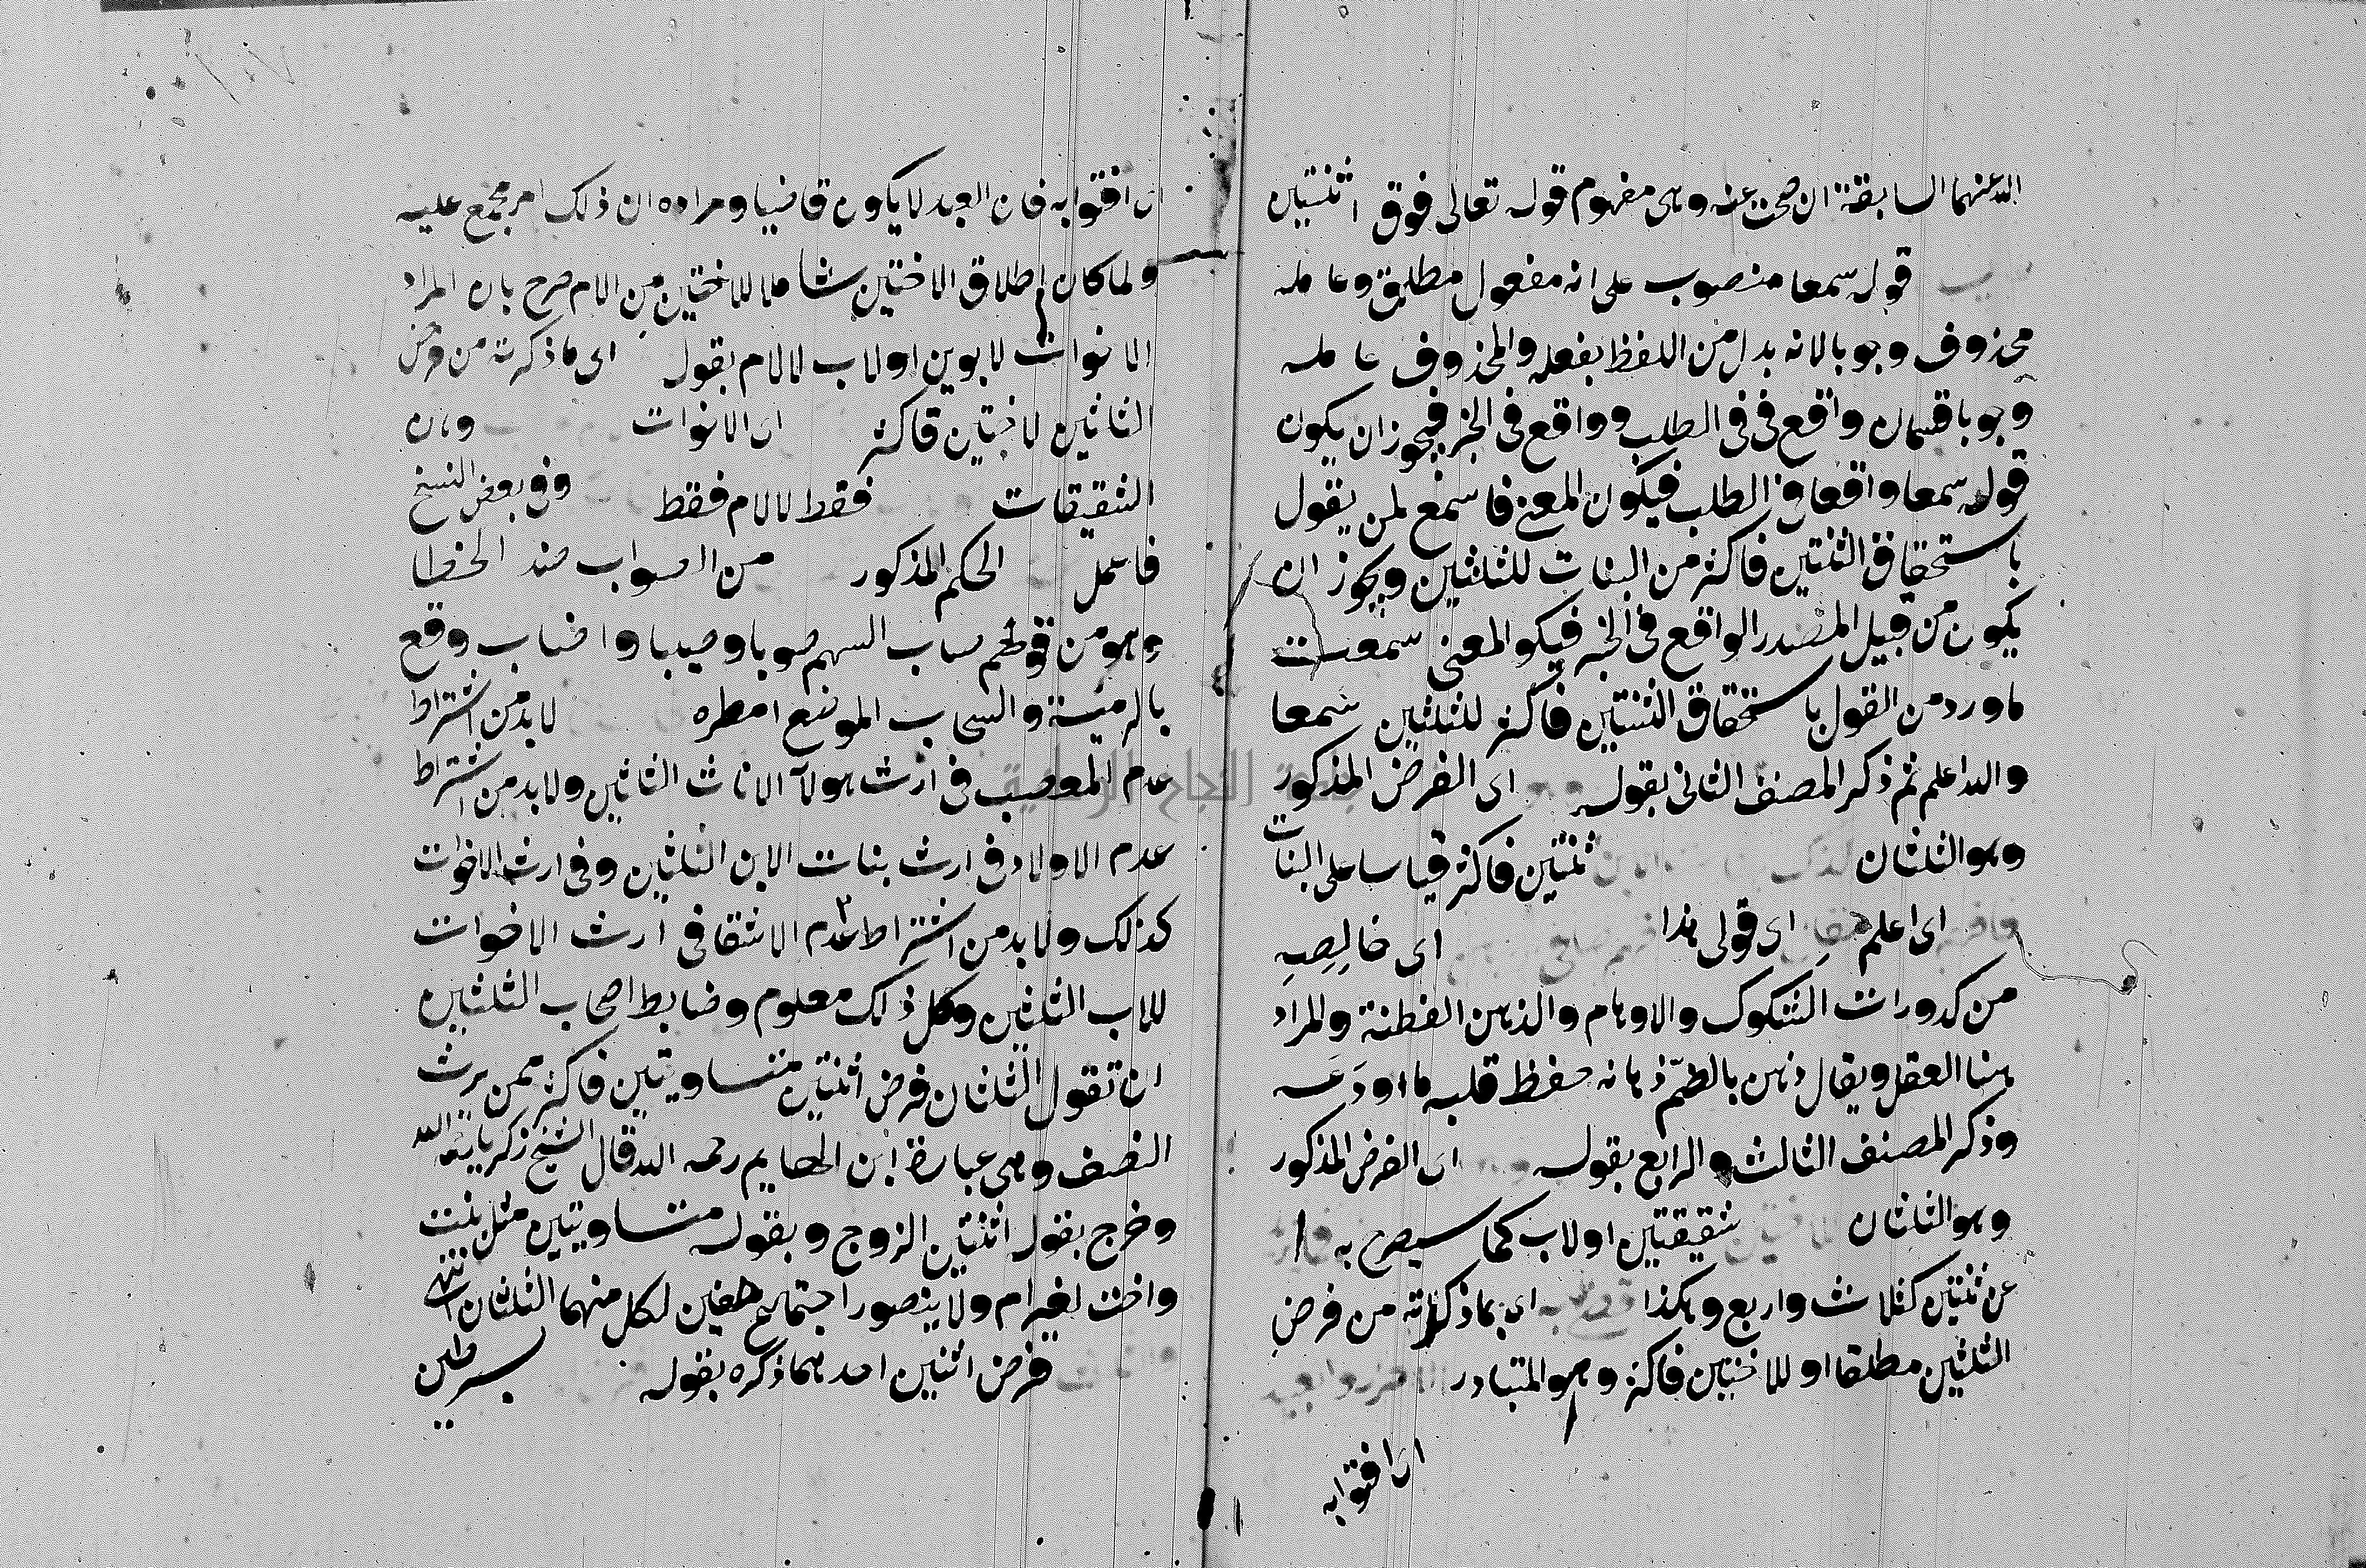 الله عنهما السابقة ان صحت عنه وهى مفهوم قوله تعالى فوق اثنتين
قوله سمعا منصوب على انه مفعول مطلق وعامله
محذوف وجوبا لانه بدل من اللفظ بفعله والمحذوف عامله
وجوبا قسمان واقع فى فى الطلب وواقع فى الخبر فيجوز ان يكون
قوله سمعا واقعا فى الطلب فيكون المعنى فاسمع لمن يقول
باستحقاق الثنتين فاكثر من البنات للثلثين ويجوز ان
يكون من قبيل المصدر الواقع فى الخبر فيكو المعنى سمعت
ما ورد من القول باستحقاق الثنتين فاكثر للثلثين سمعا
والله اعلم ثم ذكر المصنف الثانى بقوله اى الفرض المذكور
وهو الثلثان ثنتين فاكثر قياسا على البنات
اى اعلم اى قولى هذا اى خالصه
من كدورات الشكوك والاوهام والذهن الفطنة والمراد
هنا العقل ويقال ذهن بالضم ذهانه حفظ قلبه ما اودعه
وذكر المصنف الثالث والرابع بقوله اى الفرض المذكور
وهو الثلثان شقيقتين اولاب كما سيصرح به
عن ثنتين كثلاث واربع وهكذا اى بما ذكرته من فرض
الثلثين مطلقا او للاختين فاكثر وهو المتبادر
اى افتوا به
اى افتوا به فان العبد لا يكون قاضيا ومراده ان ذلك امر مجمع عليه
ولما كان اطلاق الاختين شاملا للاختين من الام صرح بان المراد
الاخوات لابوين اولاب لا لام بقوله اى ما ذكرته من فرض
الثلثين لاختين فاكثر اى الاخوات وهن
الشقيقات فقط لا لام فقط وفى بعض النسخ
فاعمل الحكم المذكور من الصواب ضد الخطا
وهو من قولهم صاب السهم صوبا وصيبا واصاب وقع
بالرمية والسحاب الموضع امطره لابد من اشتراط
عدم المعصب فى ارث هولآ الاناث الثلثين ولابد من اشتراط
عدم الاولاد فى ارث بنات الابن الثلثين وفى ارث الاخوات
كذلك ولابد من اشتراط عدم الاشقا فى ارث الاخوات
للاب الثلثين وكل ذلك معلوم وضابط اصحاب الثلثين
ان تقول الثلثان فرض اثنتين متساويتين فاكثر ممن يرث
النصف وهى عبارة ابن الهايم رحمه الله قال الشيخ زكريا رحمه الله
وخرج بقوله اثنتين الزوج وبقوله متساويتين مثل بنت
واخت لغير ام ولا يتصور اجتماع صنفين لكل منهما الثلثان انتهى
فرض اثنين احدهما ذكره بقوله بشرطين